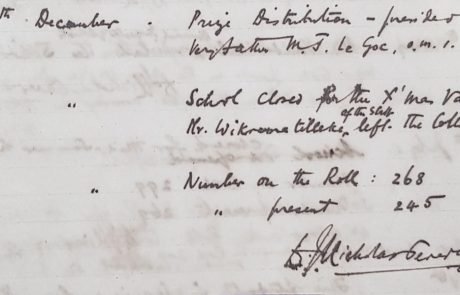 th December . Prize Distribution – presided
Rev. Father M. J. Le Goc, o.m.i.
" School closed for the X'mas Va
Mr. Wikramatilleke, of the Staff left the Colle
" Number on the Roll : 268
" present 245
Nicholas Perera